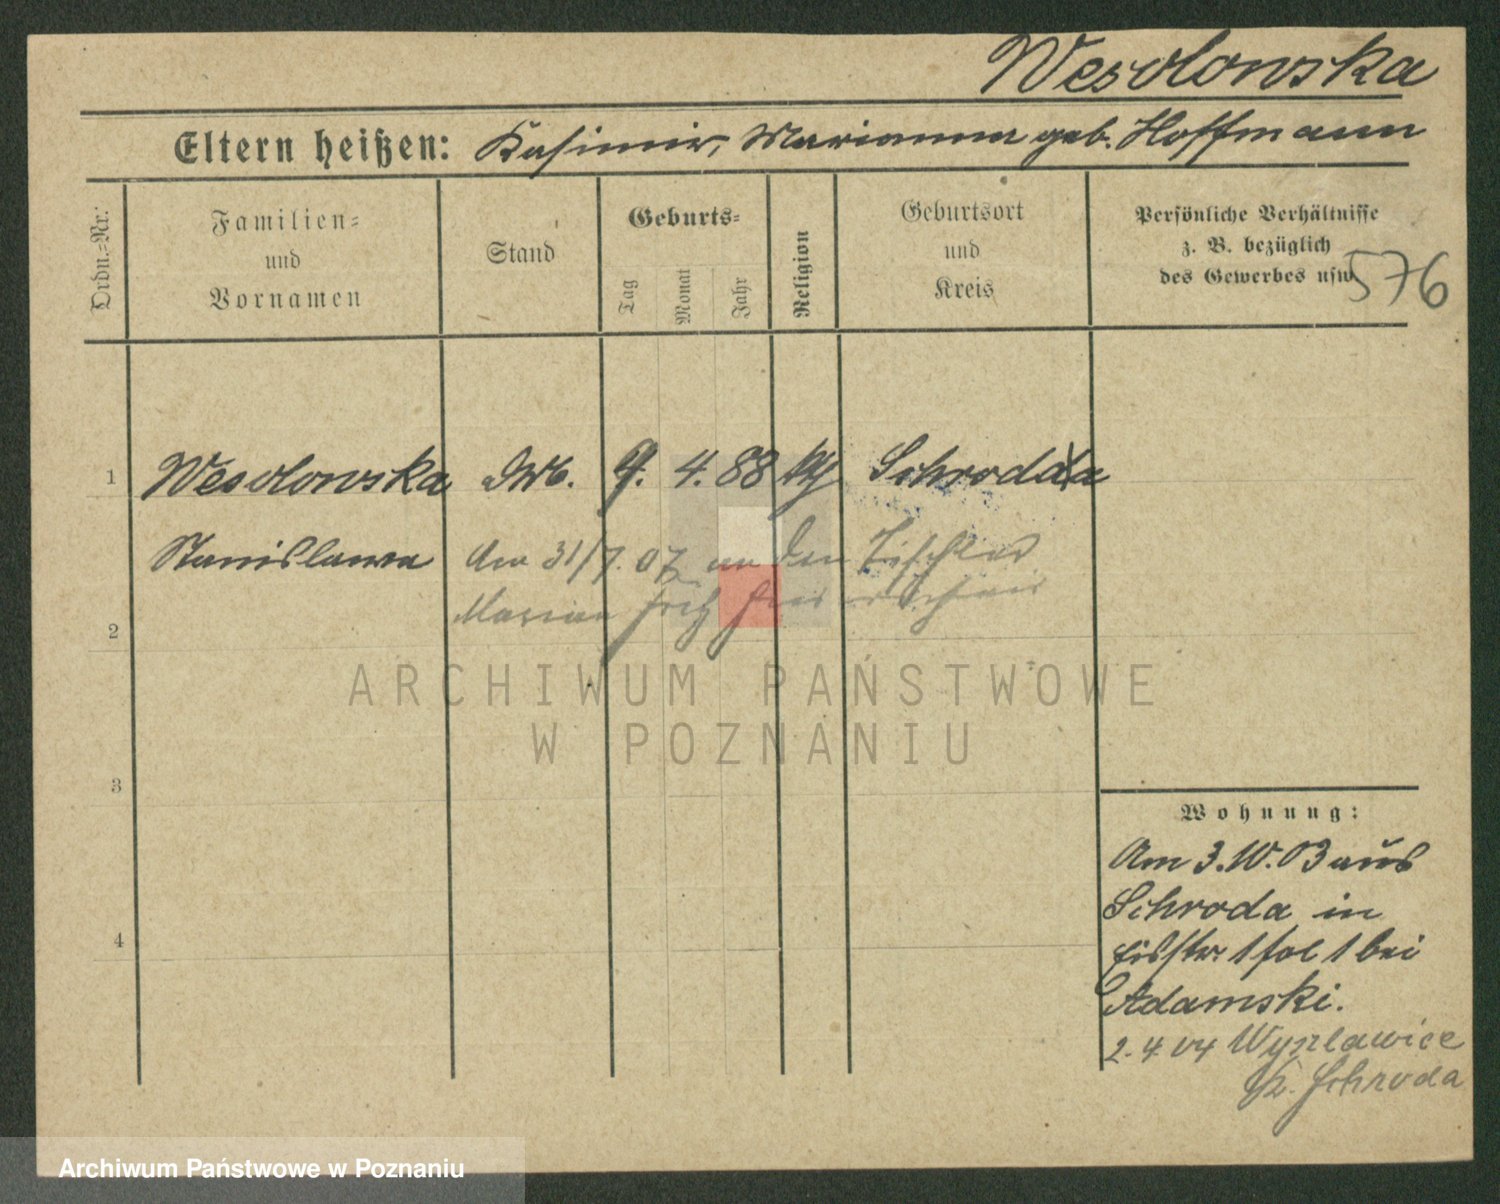 Wesolowska
Eltern heißen: Kasimir, Marianna geb. Hoffmann
Ordn.=Nr.
Familien=
und
Vornamen
Stand
Geburts=
Tag
Monat
Jahr
Religion
Geburtsort
und
Kreis
Persönliche Verhältnisse
z. B. bezüglich
des Gewerbes usw
576
1
Wesolowska 9. 4. 88 kth Schroda
Stanislawa Am 31/7. 07 an den Tischler
Marian
2
ARCHIWUM PAŃSTWOWE
W POZNANIU
3
4
Wohnung:
Am 3.10.03 aus
Schroda in
1 bei
Adamski.
2.4 04
Kr. Schroda
Archiwum Państwowe w Poznaniu